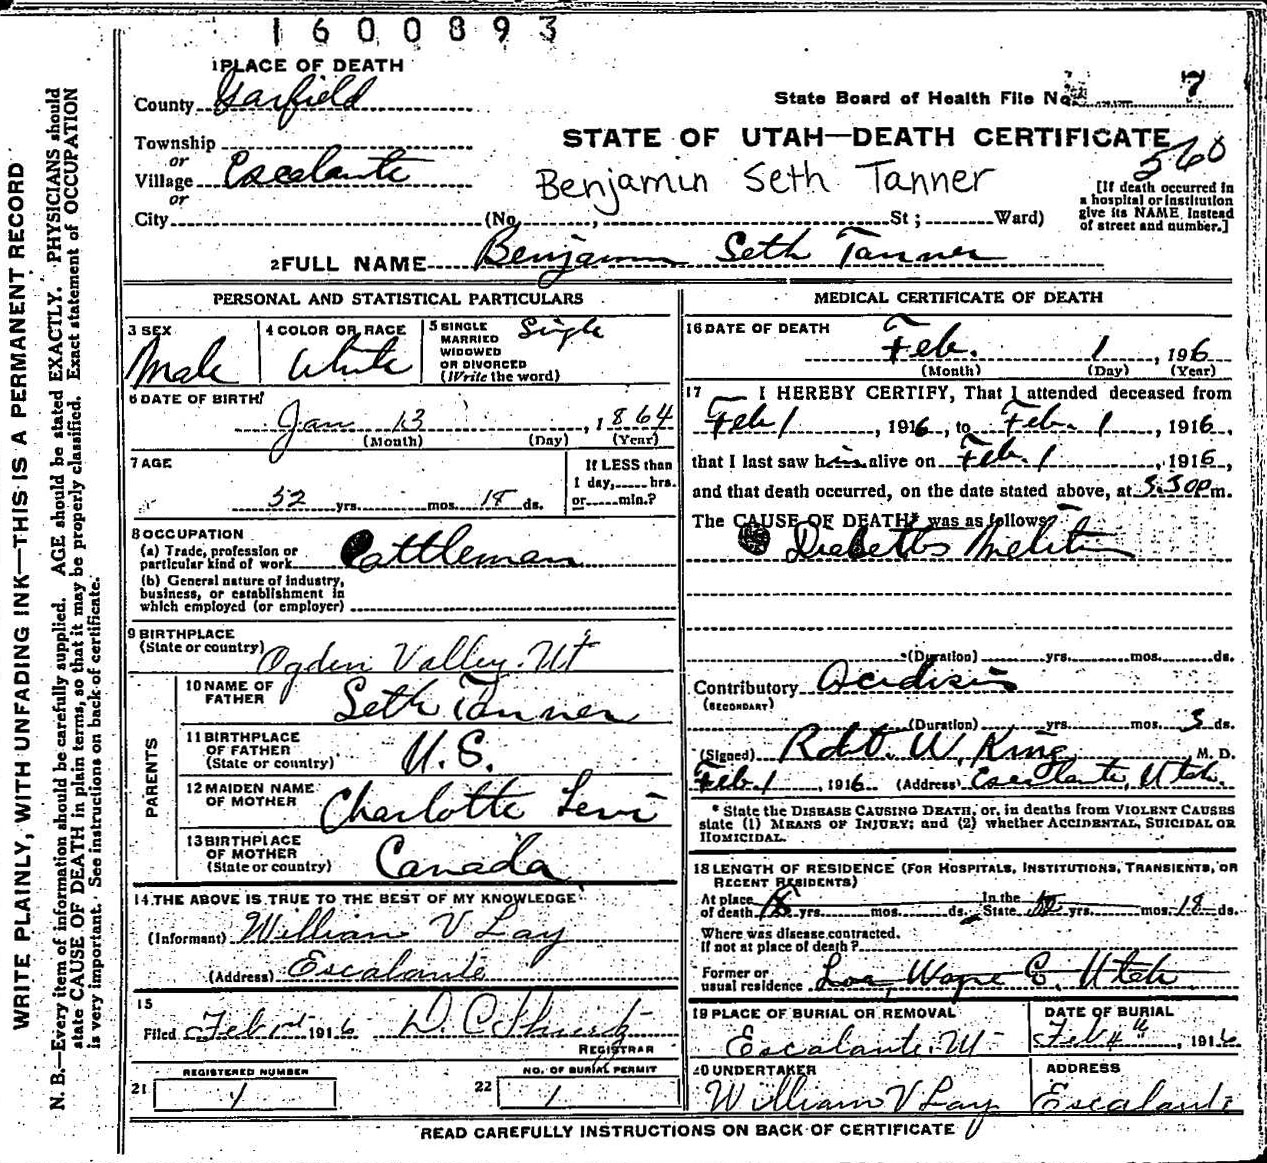 1600893
1 PLACE OF DEATH
County Garfield
State Board of Health File No. 7
Township
or
Village Escalante
or
STATE OF UTAH—DEATH CERTIFICATE
560
Benjamin Seth Tanner
[If death occurred in a hospital or institution give its NAME instead of street and number.]
City (No. , St ; Ward)
2 FULL NAME Benjamin Seth Tanner
PERSONAL AND STATISTICAL PARTICULARS
3 SEX
Male
4 COLOR OR RACE
White
5 SINGLE
MARRIED
WIDOWED
OR DIVORCED
(Write the word)
Single
6 DATE OF BIRTH
Jan 13 , 1864
(Month) (Day) (Year)
7 AGE
52 yrs. mos. 18 ds.
If LESS than
1 day, hrs.
or min.?
8 OCCUPATION
(a) Trade, profession or
particular kind of work Cattleman
(b) General nature of industry,
business, or establishment in
which employed (or employer)
9 BIRTHPLACE
(State or country) Ogden Valley. Ut
PARENTS
10 NAME OF
FATHER Seth Tanner
11 BIRTHPLACE
OF FATHER
(State or country) U.S.
12 MAIDEN NAME
OF MOTHER Charlotte Levi
13 BIRTHPLACE
OF MOTHER
(State or country) Canada
14 THE ABOVE IS TRUE TO THE BEST OF MY KNOWLEDGE
(Informant) William V Lay
(Address) Escalante
15
Filed Feb 1st 1916 D. C.
REGISTRAR
21 REGISTERED NUMBER
1
22 NO. OF BURIAL PERMIT
1
MEDICAL CERTIFICATE OF DEATH
16 DATE OF DEATH
Feb. 1 , 1916
(Month) (Day) (Year)
17 I HEREBY CERTIFY, That I attended deceased from
Feb 1 , 1916 , to Feb. 1 , 1916,
that I last saw him alive on Feb. 1 , 1916,
and that death occurred, on the date stated above, at m.
The CAUSE OF DEATH* was as follows
Diebetes
(Duration) yrs. mos. ds.
Contributory
(SECONDARY)
(Duration) yrs. mos. 3 ds.
(Signed) Robt. W. King M. D.
Feb. 1 , 1916 (Address) Escalante, Utah.
* State the DISEASE CAUSING DEATH, or, in deaths from VIOLENT CAUSES
state (1) MEANS OF INJURY; and (2) whether ACCIDENTAL, SUICIDAL OR
HOMICIDAL.
18 LENGTH OF RESIDENCE (FOR HOSPITALS, INSTITUTIONS, TRANSIENTS, OR
RECENT RESIDENTS)
At place
of death yrs. mos. ds. In the State yrs. mos. 18 ds.
Where was disease contracted.
If not at place of death?
Former or
usual residence Loa, Wayne C. Utah
19 PLACE OF BURIAL OR REMOVAL
Escalante. Ut
DATE OF BURIAL
Feb 4th , 1916
20 UNDERTAKER
William V Lay
ADDRESS
Escalante
READ CAREFULLY INSTRUCTIONS ON BACK OF CERTIFICATE
WRITE PLAINLY, WITH UNFADING INK—THIS IS A PERMANENT RECORD
N. B.—Every item of information should be carefully supplied. AGE should be stated EXACTLY. PHYSICIANS should
state CAUSE OF DEATH in plain terms, so that it may be properly classified. Exact statement of OCCUPATION
is very important. See instructions on back of certificate.